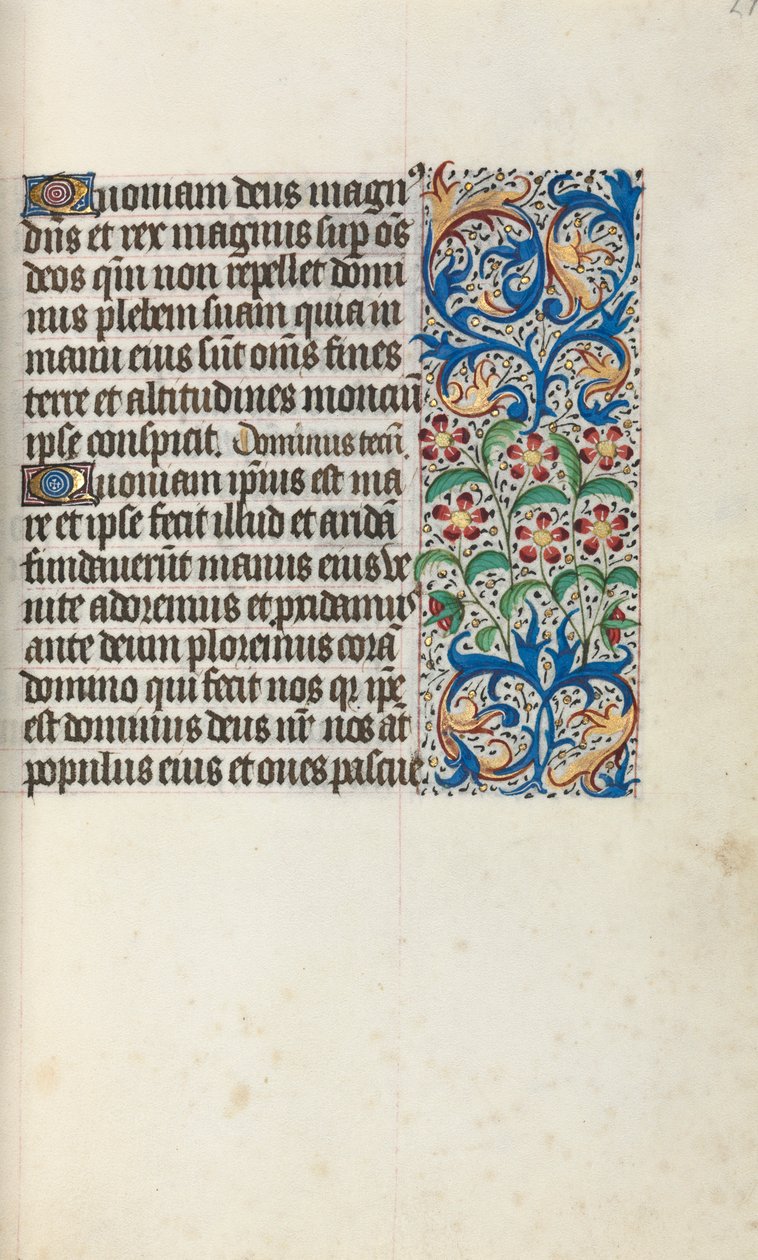 Quoniam deus magnꝰ
dn̄s et rex magnus sup om̄s
deos qm̄ non repellet domi
nus plebem suam quia in
manu eius sūt om̄s fines
terre et altitudines monciū
ipse conspicit. Dominus tecū.
Quoniam ip̄ius est ma
re et ipse fecit illud et aridā
fundauerūt manus eius ve
nite adoremus et ꝓcidamꝰ
ante deum ploremus corā
domino qui fecit nos qr ip̄e
est dominus deus nr̄ nos at̄
populus eius et oues pascue